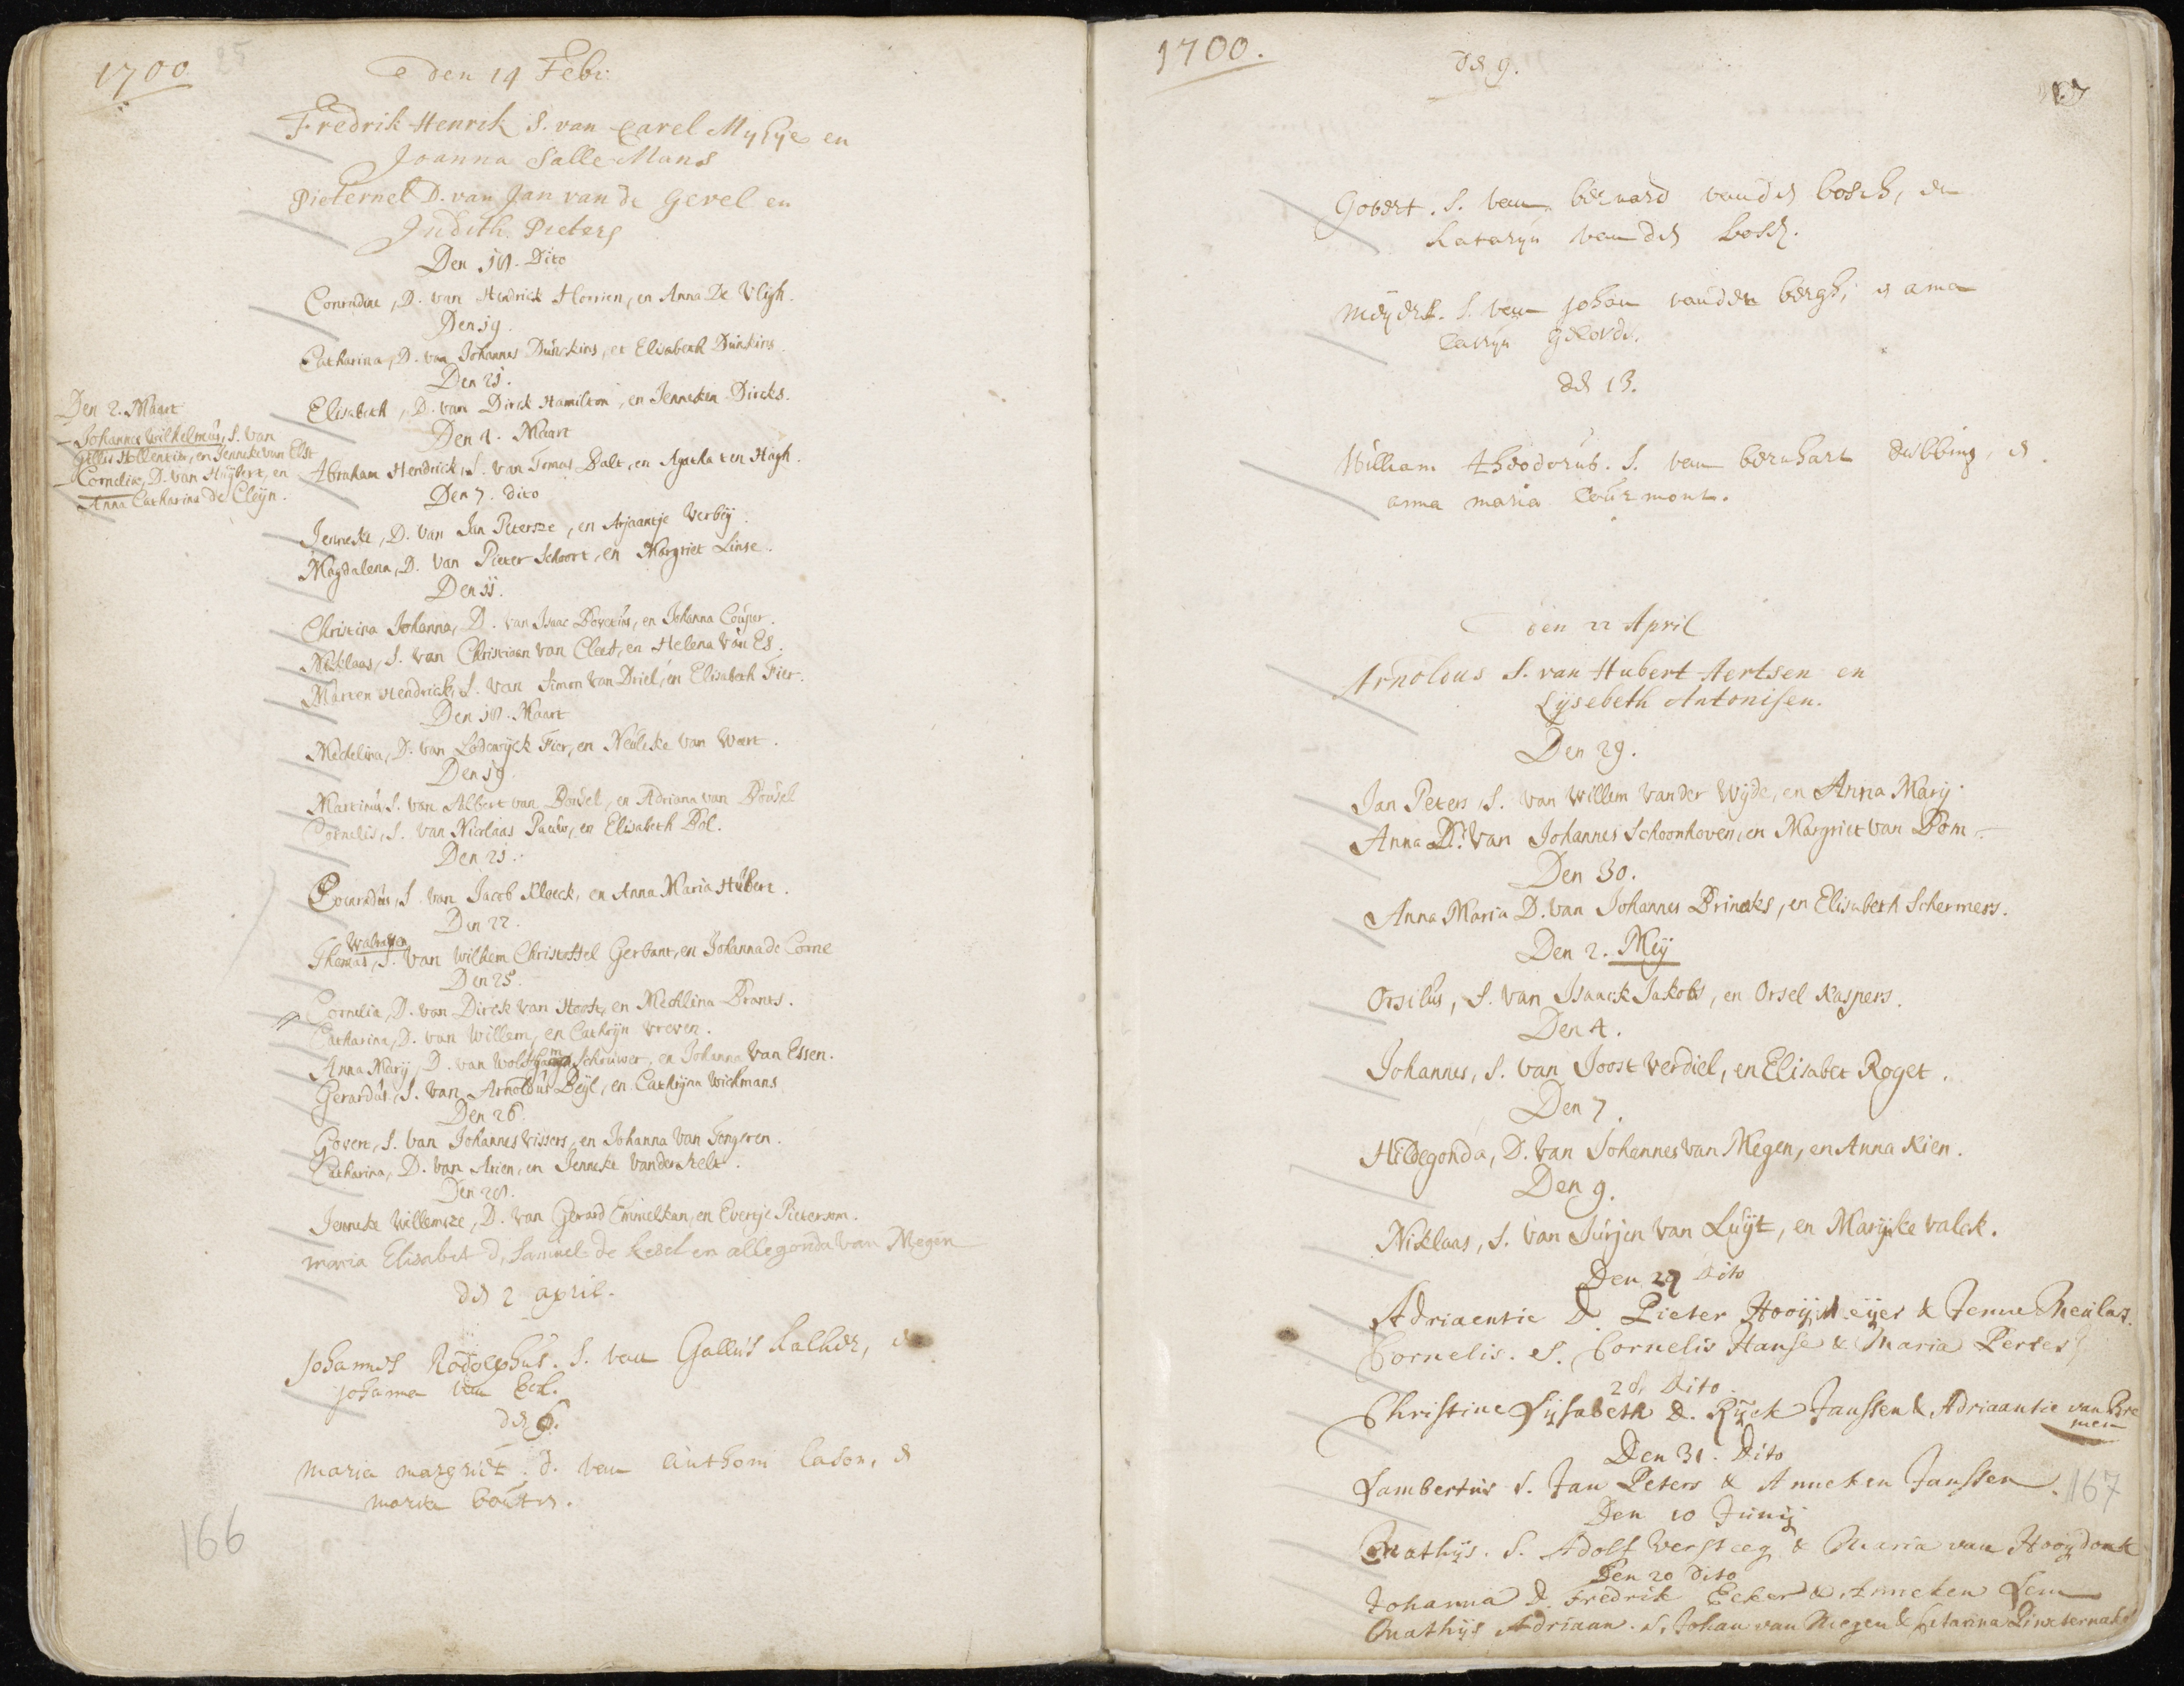 1700
25
den 14 Febr:
Fredrik Henrik S. van Carel Mylye en
Joanna Salle Mans
Pieternel D. van Jan van de Gevel en
Judith Pieters
Den 18. Dito
Conradine, D. van Hendrick Horrien, en Anna De Vligh.
Den 19.
Catharina, D. van Johannes Dunckins, en Elisabeth Dunkins.
Den 21.
Elisabeth, D. van Dirck Hamilton, en Jenneken Dircks.
Den 2. Maart
Johannes Wilhelmus, S. van
Gillis Hollentin, en Jenneke van Elst
Kornelia, D. van Huybert, en
Anna Catharina de Cleyn.
Den 4. Maart
Abraham Hendrick, S. van Tomas Balt, en Agatha ten Hagh.
Den 7. Dito
Jenneke, D. van Jan Petersze, en Arjaantje Verbey.
Magdalena, D. van Pieter Schoort, en Margriet Linse.
Den 11.
Christina Johanna, D. van Isaac Bovetius, en Johanna Couper.
Niklaas, S. van Christiaan van Cleef, en Helena van Es.
Marten Hendrick, S. van Simon van Driel, en Elisabeth Fier.
Den 18. Maart
Mechelina, D. van Lodewyck Fier, en Neuleke van Wert.
Den 19
Martinus S. van Albert van Boudel, en Adriana van Boudel
Cornelis, S. van Nicolaas Pauw, en Elisabeth Bol.
Den 21.
Conradus, S. van Jacob Kloeck, en Anna Maria Hubert.
Den 22.
Walraven
Thomas, S. van Wilhem Christoffel Gerbant, en Johanna de Corne
Den 25.
Cornelia, D. van Dirck van Hooft, en Mechlina Brants.
Catharina, D. van Willem, en Cathryn Vreven.
Anna Mary, D. van Schruwer, en Johanna Van Essen.
Gerardus, S. van Arnoldus Beyl, en Cathryna Wichmans
Den 26
Govert, S. van Johannes Vissers, en Johanna van Tongeren.
Catharina, D. van Arien, en Jenneke Vanderhelt.
Den 28.
Jenneke Willemsze, D. van Gerard Emmelkan, en Evertje Pietersom.
maria Elisabet d, Samuel de kesel en allegonda van Megen
den 2 april.
Johannes Rodolphus. S. van Gallus Kalker, en
Johanna van Eck.
den 6.
Maria margriet. d. van Anthoni Cason, en
maria bouten.
166
1700.
den 9.
Govert. S. van bernard vanden bosch, en
Kataryn vanden bosch.
Meyndert. S. van Johan vanden bergh, en anna
Catryn
den 13.
William theodorus. S. van bernhart dubbing, en
anna maria Courmont.
den 22 April
Arnoldus S. van Hubert Aertsen en
Lysebeth Antonisen.
Den 29.
Jan Peters, S. van Willem vander Wyde, en Anna Mary.
Anna D. van Johannes Schoonhoven, en Margriet van Bom-
Den 30.
Anna Maria D. van Johannes Brincks, en Elisabeth Schermers.
Den 2. Mey
Orsilus, S. van Isaack Jakobs, en Orsel Kaspers.
Den 4.
Johannes, S. van Joost Verdiel, en Elisabet Roget.
Den 7.
Hildegonda, D. van Johannes van Megen, en Anna Kien.
Den 9.
Niklaas, S. van Jurjen van Luyt, en Maryke Valck.
Den 27 Dito
Adriaentie D. Pieter Hooymeyer & Jenne Meulas.
Cornelis. S. Cornelis Hanse & Maria Perres
28, Dito
Christine Lysabeth D. Ryck Janssen & Adriaantie van Bre
men
Den 31. Dito
Lambertus S. Jan Peters & Anneken Janssen.
167
Den 10 Junij
Mathys. S. Adolf Versteeg & Maria van Hooydonk
Den 20 dito
Johanna D. Fredrik Ecker & Anneken Lem
Mathys Adriaan. S. Johan van Megen & Catarina Pinxternakel